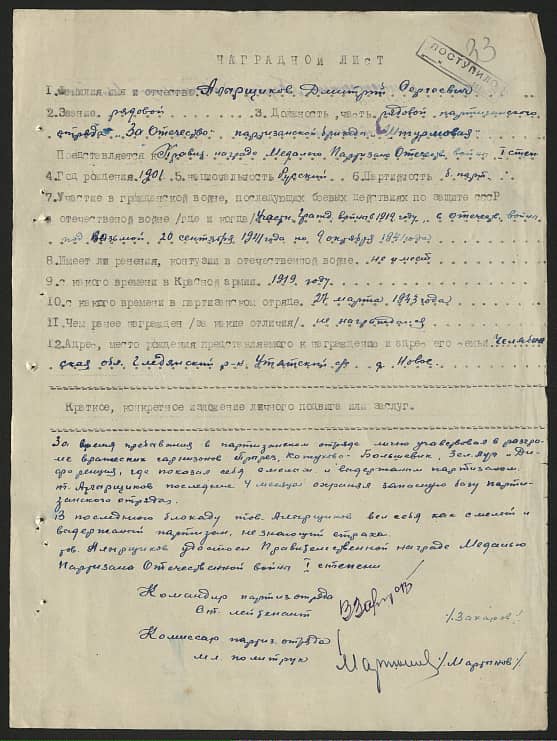 33
ПОСТУПИЛО
НАГРАДНОЙ ЛИСТ
1. Фамилия имя и отчество Алырщиков Дмитрий Сергеевич
2. Звание рядовой 3. Должность часть рядовой партизанского
отряда "За Отечество" партизанской бригады "Штурмовая"
Представляется к Правит. награде Медалью Партизана Отечеств. войны I степ
4. Год рождения 1901. 5. национальность Русский 6. Партийность б. парт.
7. Участие в гражданской войне, последующих боевых действиях по защите СССР
и отечественной войне /где и когда/ Участн. гражд. войны 1919 году, в Отечеств. войне
под Вязьмой 20 сентября 1941 года по 9 октября 1941 года
8. Имеет ли ранения, контузии в отечественной войне. не имеет
9. с какого времени в Красной армии. 1919 году
10. с какого времени в партизанском отряде. 27 марта 1943 года
11. Чем ранее награжден /за какие отличия/. не награждался
12. Адрес, место рождения представляемого к награждению и адрес его семьи Челябин
ская обл. Глядянский р-н Утятский с/с д. Новое
Краткое, конкретное изложение личного подвига или заслуг.
За время пребывания в партизанском отряде лично учавствовал в разгро
ме вражеских гарнизонов
где показал себя смелым и выдержаным партизаном.
т. Алырщиков последние 4 месяца охранял запасную базу парти-
занского отряда.
В последнюю блокаду тов. Алырщиков вел себя как смелый и
выдержаный партизан, не знающий страха.
тов. Алырщиков удостоен Правительственной награде Медалью
Партизана Отечественной войны I степени
Командир партизотряда
Ст. лейтенант /Захаров/
Комиссар партиз. отряда
мл. политрук /Мартынов/